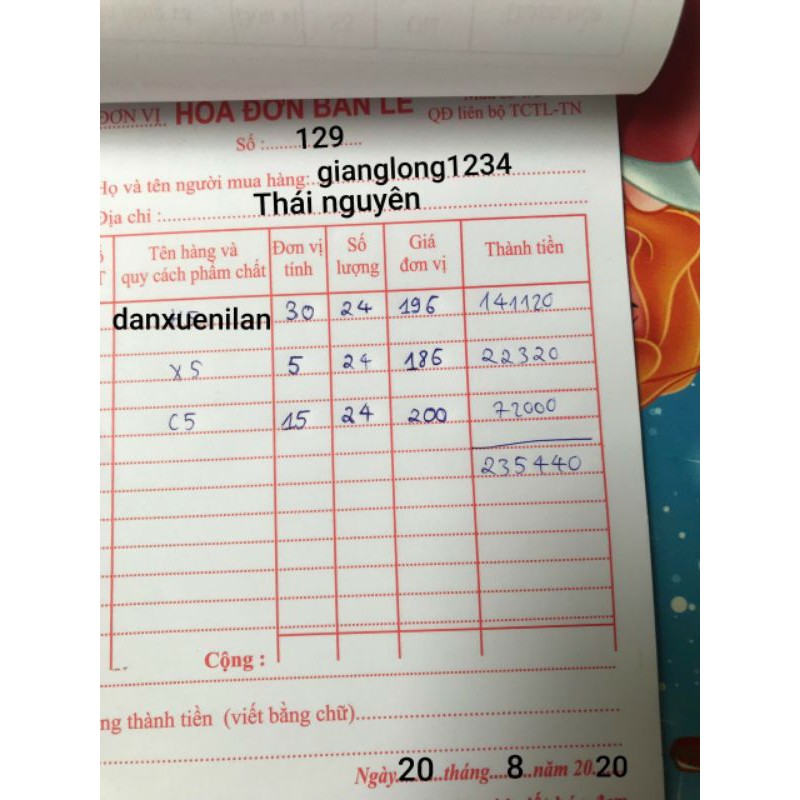 ĐƠN VỊ HÓA ĐƠN BÁN LẺ
QĐ liên bộ TCTL-TN
Số :.......129....
Họ và tên người mua hàng:..gianglong1234
Địa chỉ :..........Thái nguyên
Tên hàng và quy cách phẩm chất Đơn vị tính Số lượng Giá đơn vị Thành tiền
danxuenilan 30 24 196 141120
X5 5 24 186 22320
C5 15 24 200 72000
235440
Cộng :
ng thành tiền (viết bằng chữ)
Ngày 20 tháng 8 năm 20 20